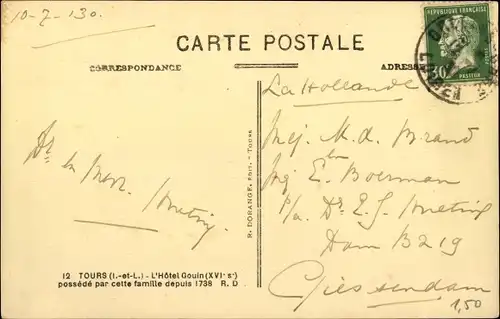 10-7-'30.
CARTE POSTALE
CORRESPONDANCE
ADRESSE
REPUBLIQUE FRANÇAISE
30
PASTEUR
POSTES
La Hollande
Mej. M. d.
Mej E. Boerman
p/a Dr. E. J.
Dam B 219
Giessendam
Dr en Mevr.
R. DORANGE, ÉDIT. - TOURS
12 TOURS (I.-et-L.) - L'Hôtel Gouin (XVIᵉ sᵉ)
possédé par cette famille depuis 1738 R. D
1,50